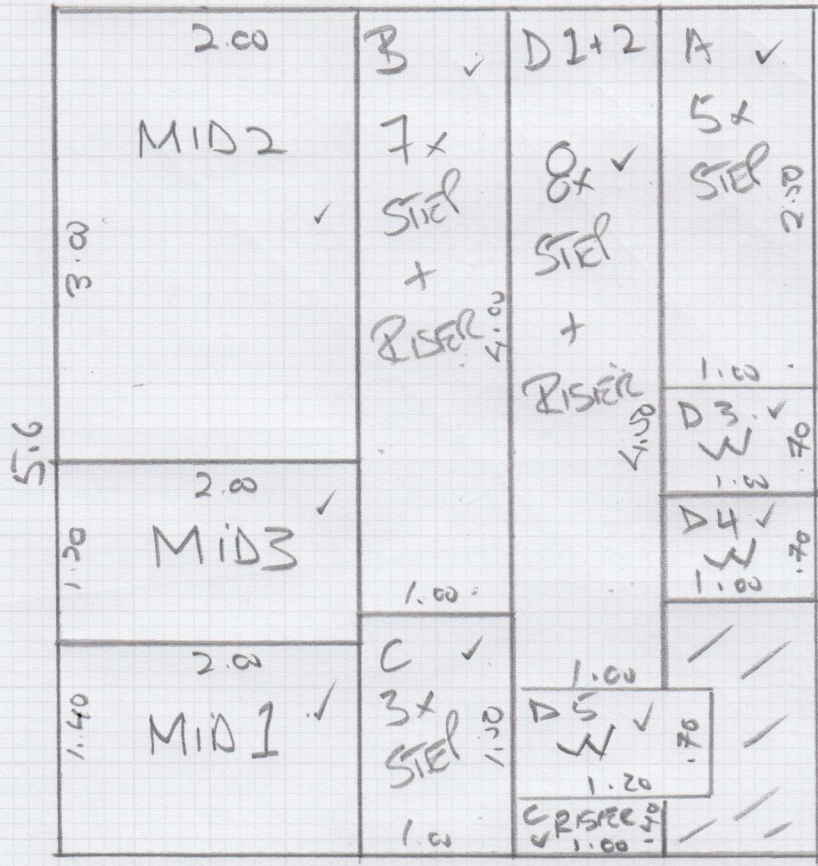 2.00
MID2 ✓
3.00
5.6
2.00
MID3 ✓
1.20
2.00
MID1 ✓
1.40
B ✓
7x
STEP
+
RISER
4.00
1.00
C ✓
3x
STEP
1.50
1.00
D1+2
8x ✓
STEP
+
RISER
4.50
1.00
D5 ✓
W
.70
1.20
C RISER .40
✓ 1.00
A ✓
5x
STEP
2.50
1.00
D3 ✓
W
.70
1.00
D4 ✓
W
.70
1.00